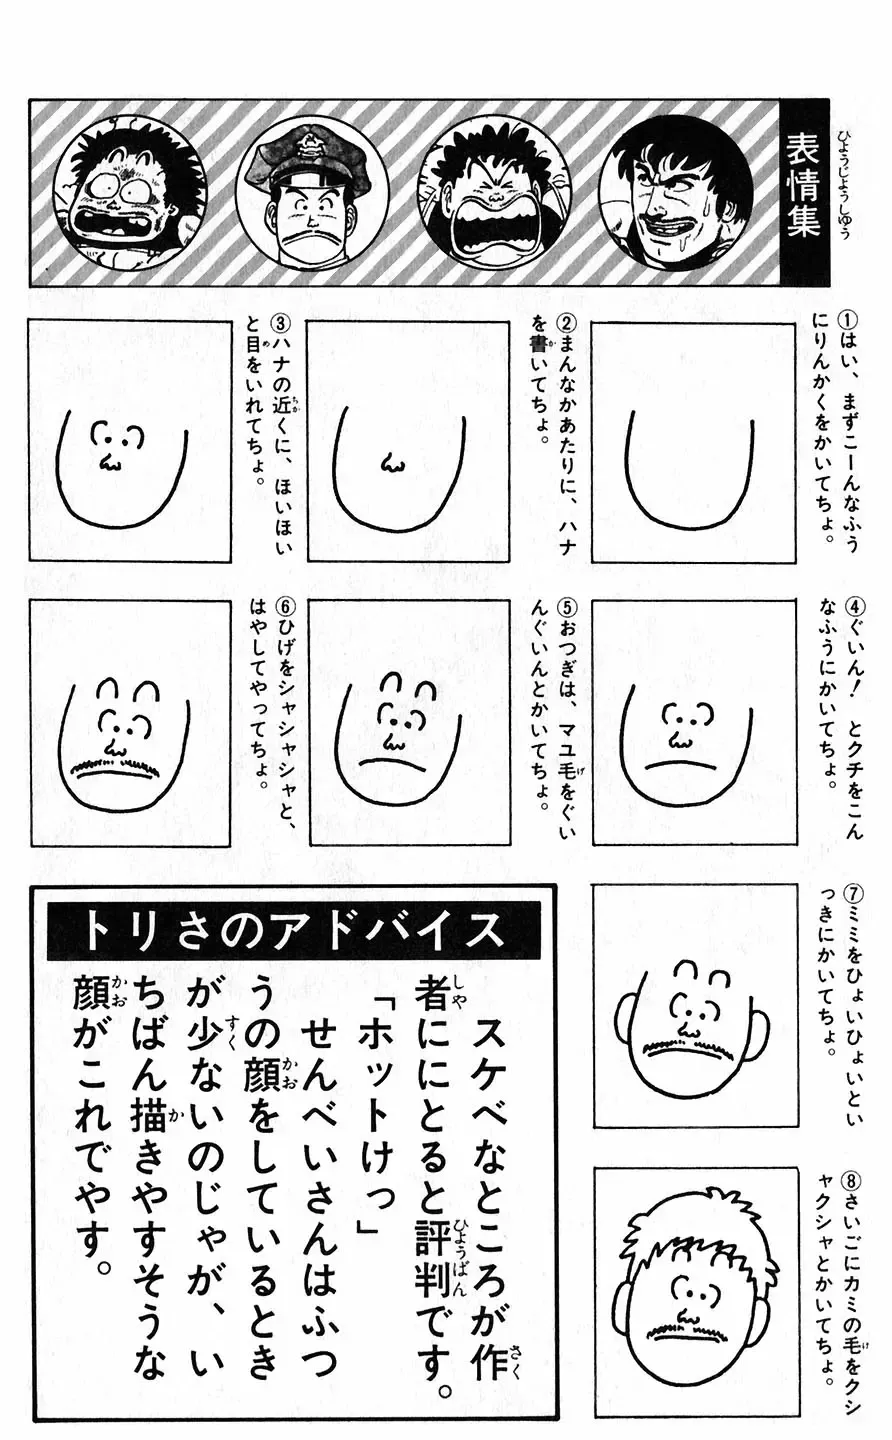 表情集
ひようじようしゆう
①はい、まずこーんなふう
にりんかくをかいてちょ。
②まんなかあたりに、ハナ
を書いてちょ。
か
③ハナの近くに、ほいほい
ちか
と目をいれてちょ。
め
④ぐいん！　とクチをこん
なふうにかいてちょ。
⑤おつぎは、マユ毛をぐい
げ
んぐいんとかいてちょ。
⑥ひげをシャシャシャと、
はやしてやってちょ。
⑦ミミをひょいひょいとい
っきにかいてちょ。
⑧さいごにカミの毛をクシ
け
ャクシャとかいてちょ。
トリさのアドバイス
スケベなところが作
さく
者ににとると評判です。
しや
ひようばん
「ホットけっ」
せんべいさんはふつ
うの顔をしているとき
かお
が少ないのじゃが、い
すく
ちばん描きやすそうな
か
顔がこれでやす。
かお